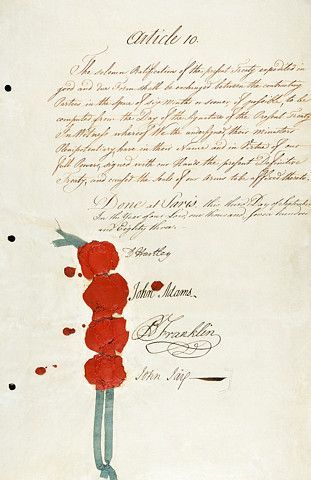 Article 10.
The solemn Ratifications of the present Treaty expedited in
good and due Form shall be exchanged between the contracting
Parties in the Space of Six Months or sooner if possible, to be
computed from the Day of the Signature of the Present Treaty.
In Witness whereof We the undersigned their Ministers
Plenipotentiary have in their Name and in Virtue of our
Full Powers signed with our Hands the present Definitive
Treaty, and caused the Seals of our Arms to be affixed thereto.
Done at Paris, this third Day of September,
In the Year of our Lord one thousand seven hundred
and Eighty three.
D Hartley
John Adams
B Franklin
John Jay